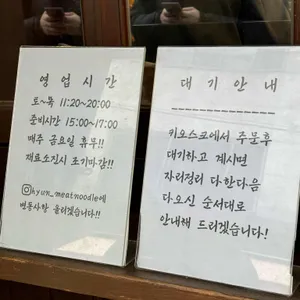 영업시간
토~목 11:20~20:00
준비시간 15:00~17:00
매주 금요일 휴무!!
재료소진시 조기마감!!
hyun_meatnoodle에
변동사항 올리겠습니다!!
대기안내
키오스크에서 주문후
대기하고 계시면
자리정리 다한다음
다오신 순서대로
안내해 드리겠습니다!